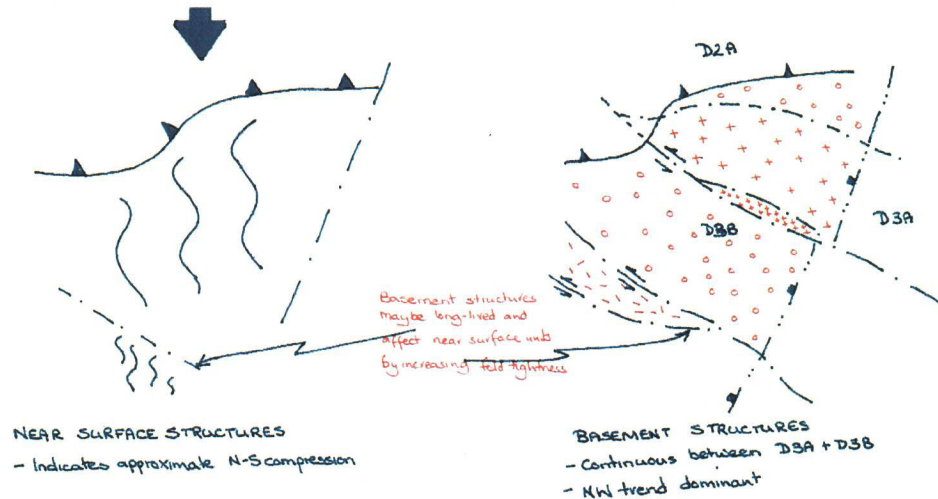 D2A
D3A
D3B
Basement structures
maybe long-lived and
affect near surface units
by increasing fold tightness
NEAR SURFACE STRUCTURES
- Indicates approximate N-S compression
BASEMENT STRUCTURES
- Continuous between D3A + D3B
- NW trend dominant